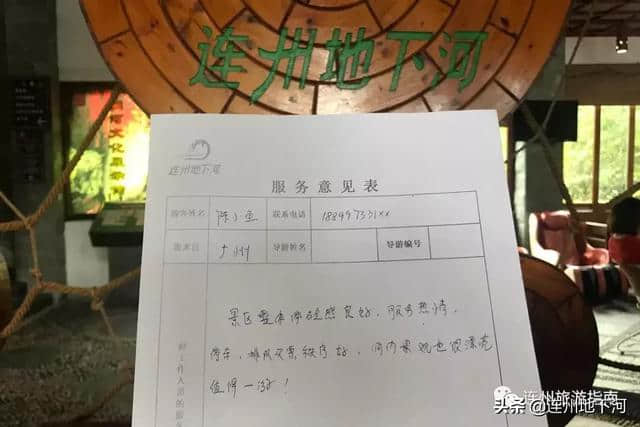 连州地下河
连州地下河
服务意见表
游客姓名 陈小鱼 联系电话 188497531xx
游来自 广州 导游姓名 导游编号
景区整体体验感良好，服务热情，
停车，排队买票秩序好，河内景观也很漂亮
值得一游！
对工作人员的服
连州旅游指南
头条 @连州地下河